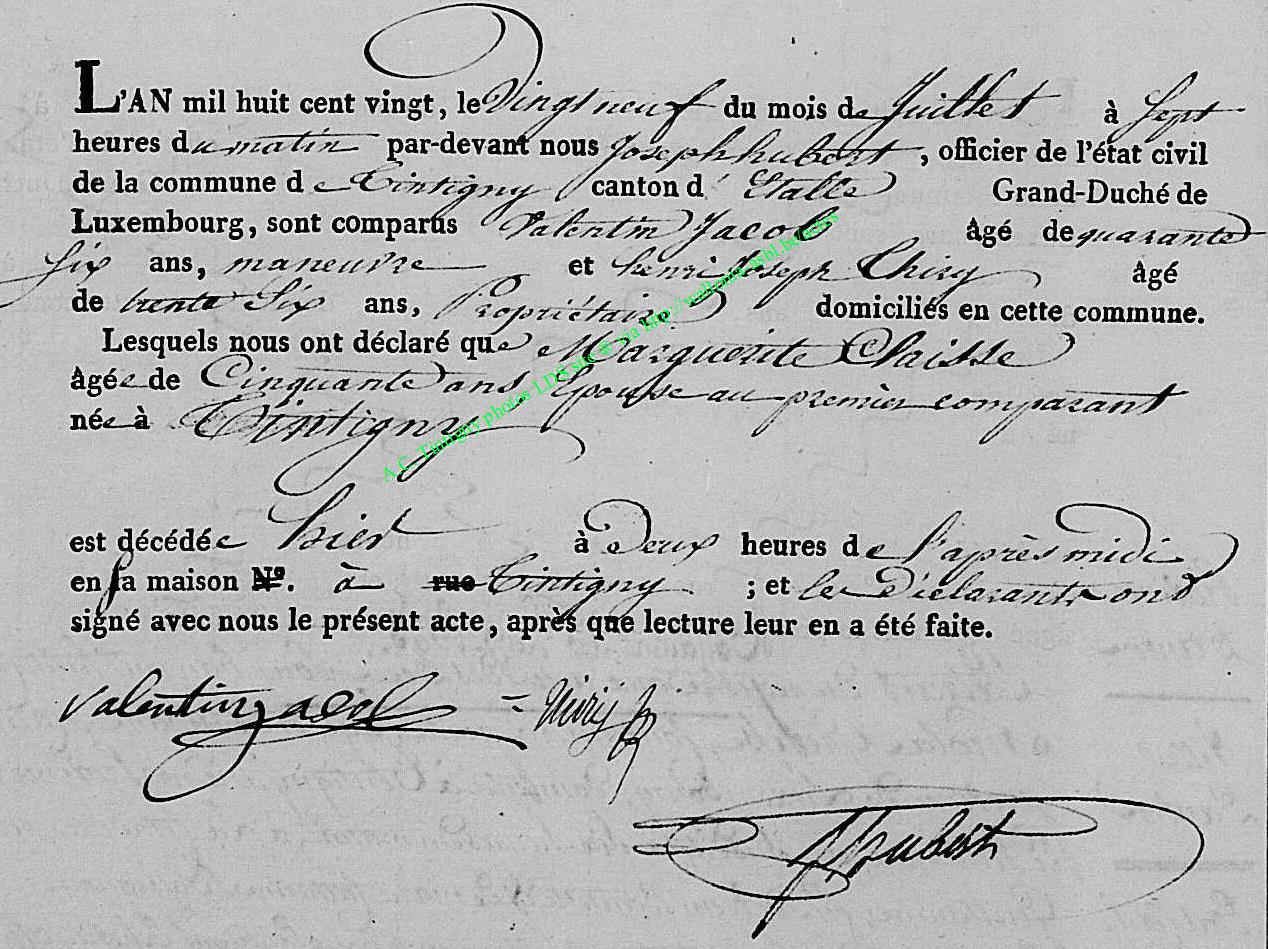 L'AN mil huit cent vingt, le Vingt neuf du mois de Juillet à Sept
heures du matin par-devant nous Joseph hubert, officier de l'état civil
de la commune de Tintigny canton d' Etalle Grand-Duché de
Luxembourg, sont comparus Valentin Jacob âgé de quarante
Six ans, maneuvre et henri Joseph Thiry âgé
de trente Six ans, Propriétaire domiciliés en cette commune.
Lesquels nous ont déclaré que Marguerite Claisse
âgée de Cinquante ans Epouse au premier comparant
née à Tintigny
est décédée hier à Deux heures de l'après midi
en sa maison N°. à rue Tintigny ; et les Déclarants ont
signé avec nous le présent acte, après que lecture leur en a été faite.
valentin jacob = thiry
JHubert
A.C. Tintigny photos LDS site ® via http://wallonia-asbl.be/actes